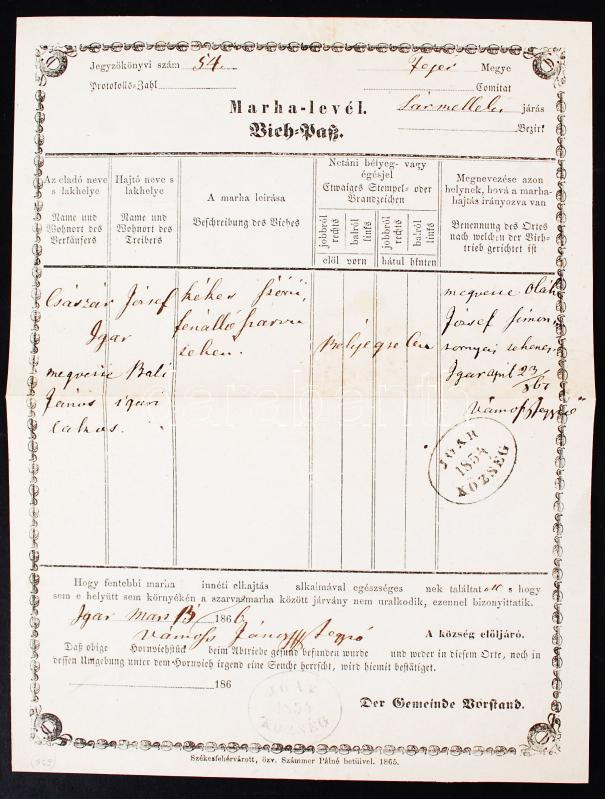 Jegyzőkönyvi szám 54. Megye
Protokolls-Zahl Comitat
Marha-levél. járás
Vieh-Paß. Bezirk
Az eladó neve s lakhelye
Name und Wohnort des Verkäufers
Hajtó neve s lakhelye
Name und Wohnort des Treibers
A marha leirása
Beschreibung des Viehes
Netáni bélyeg- vagy égésjel
Etwaiges Stempel- oder Brandzeichen
jobbról rechts
balról links
jobbról rechts
balról links
elöl vorn
hátul hinten
Megnevezése azon helynek, hová a marha-hajtás irányozva van
Benennung des Ortes nach welchen der Viehtrieb gerichtet ist
Császár József
Igar
megvette Bali
János igari
lakos.
kékes szőrü,
fenálló szarvu
tehén.
Bélyegtelen
megvette Oláh
József Simon
tornyai tehenet
Igar april 23
Vámos
IGAR
1854
KÖZSÉG
Hogy fentebbi marha innéti elhajtás alkalmával egészséges nek találtatott s hogy
sem e helyütt sem környékén a szarvasmarha között járvány nem uralkodik, ezennel bizonyittatik.
Igar Mart 13 1866
Vámos János
A község elöljáró.
Daß obige Hornviehstück beim Abtriebe gesund befunden wurde und weder in diesem Orte, noch in
dessen Umgebung unter dem Hornvieh irgend eine Seuche herrscht, wird hiemit bestätiget.
186
IGAR
1854
KÖZSÉG
Der Gemeinde Vorstand.
Székesfehérvárott, özv. Számmer Pálné betüivel. 1865.